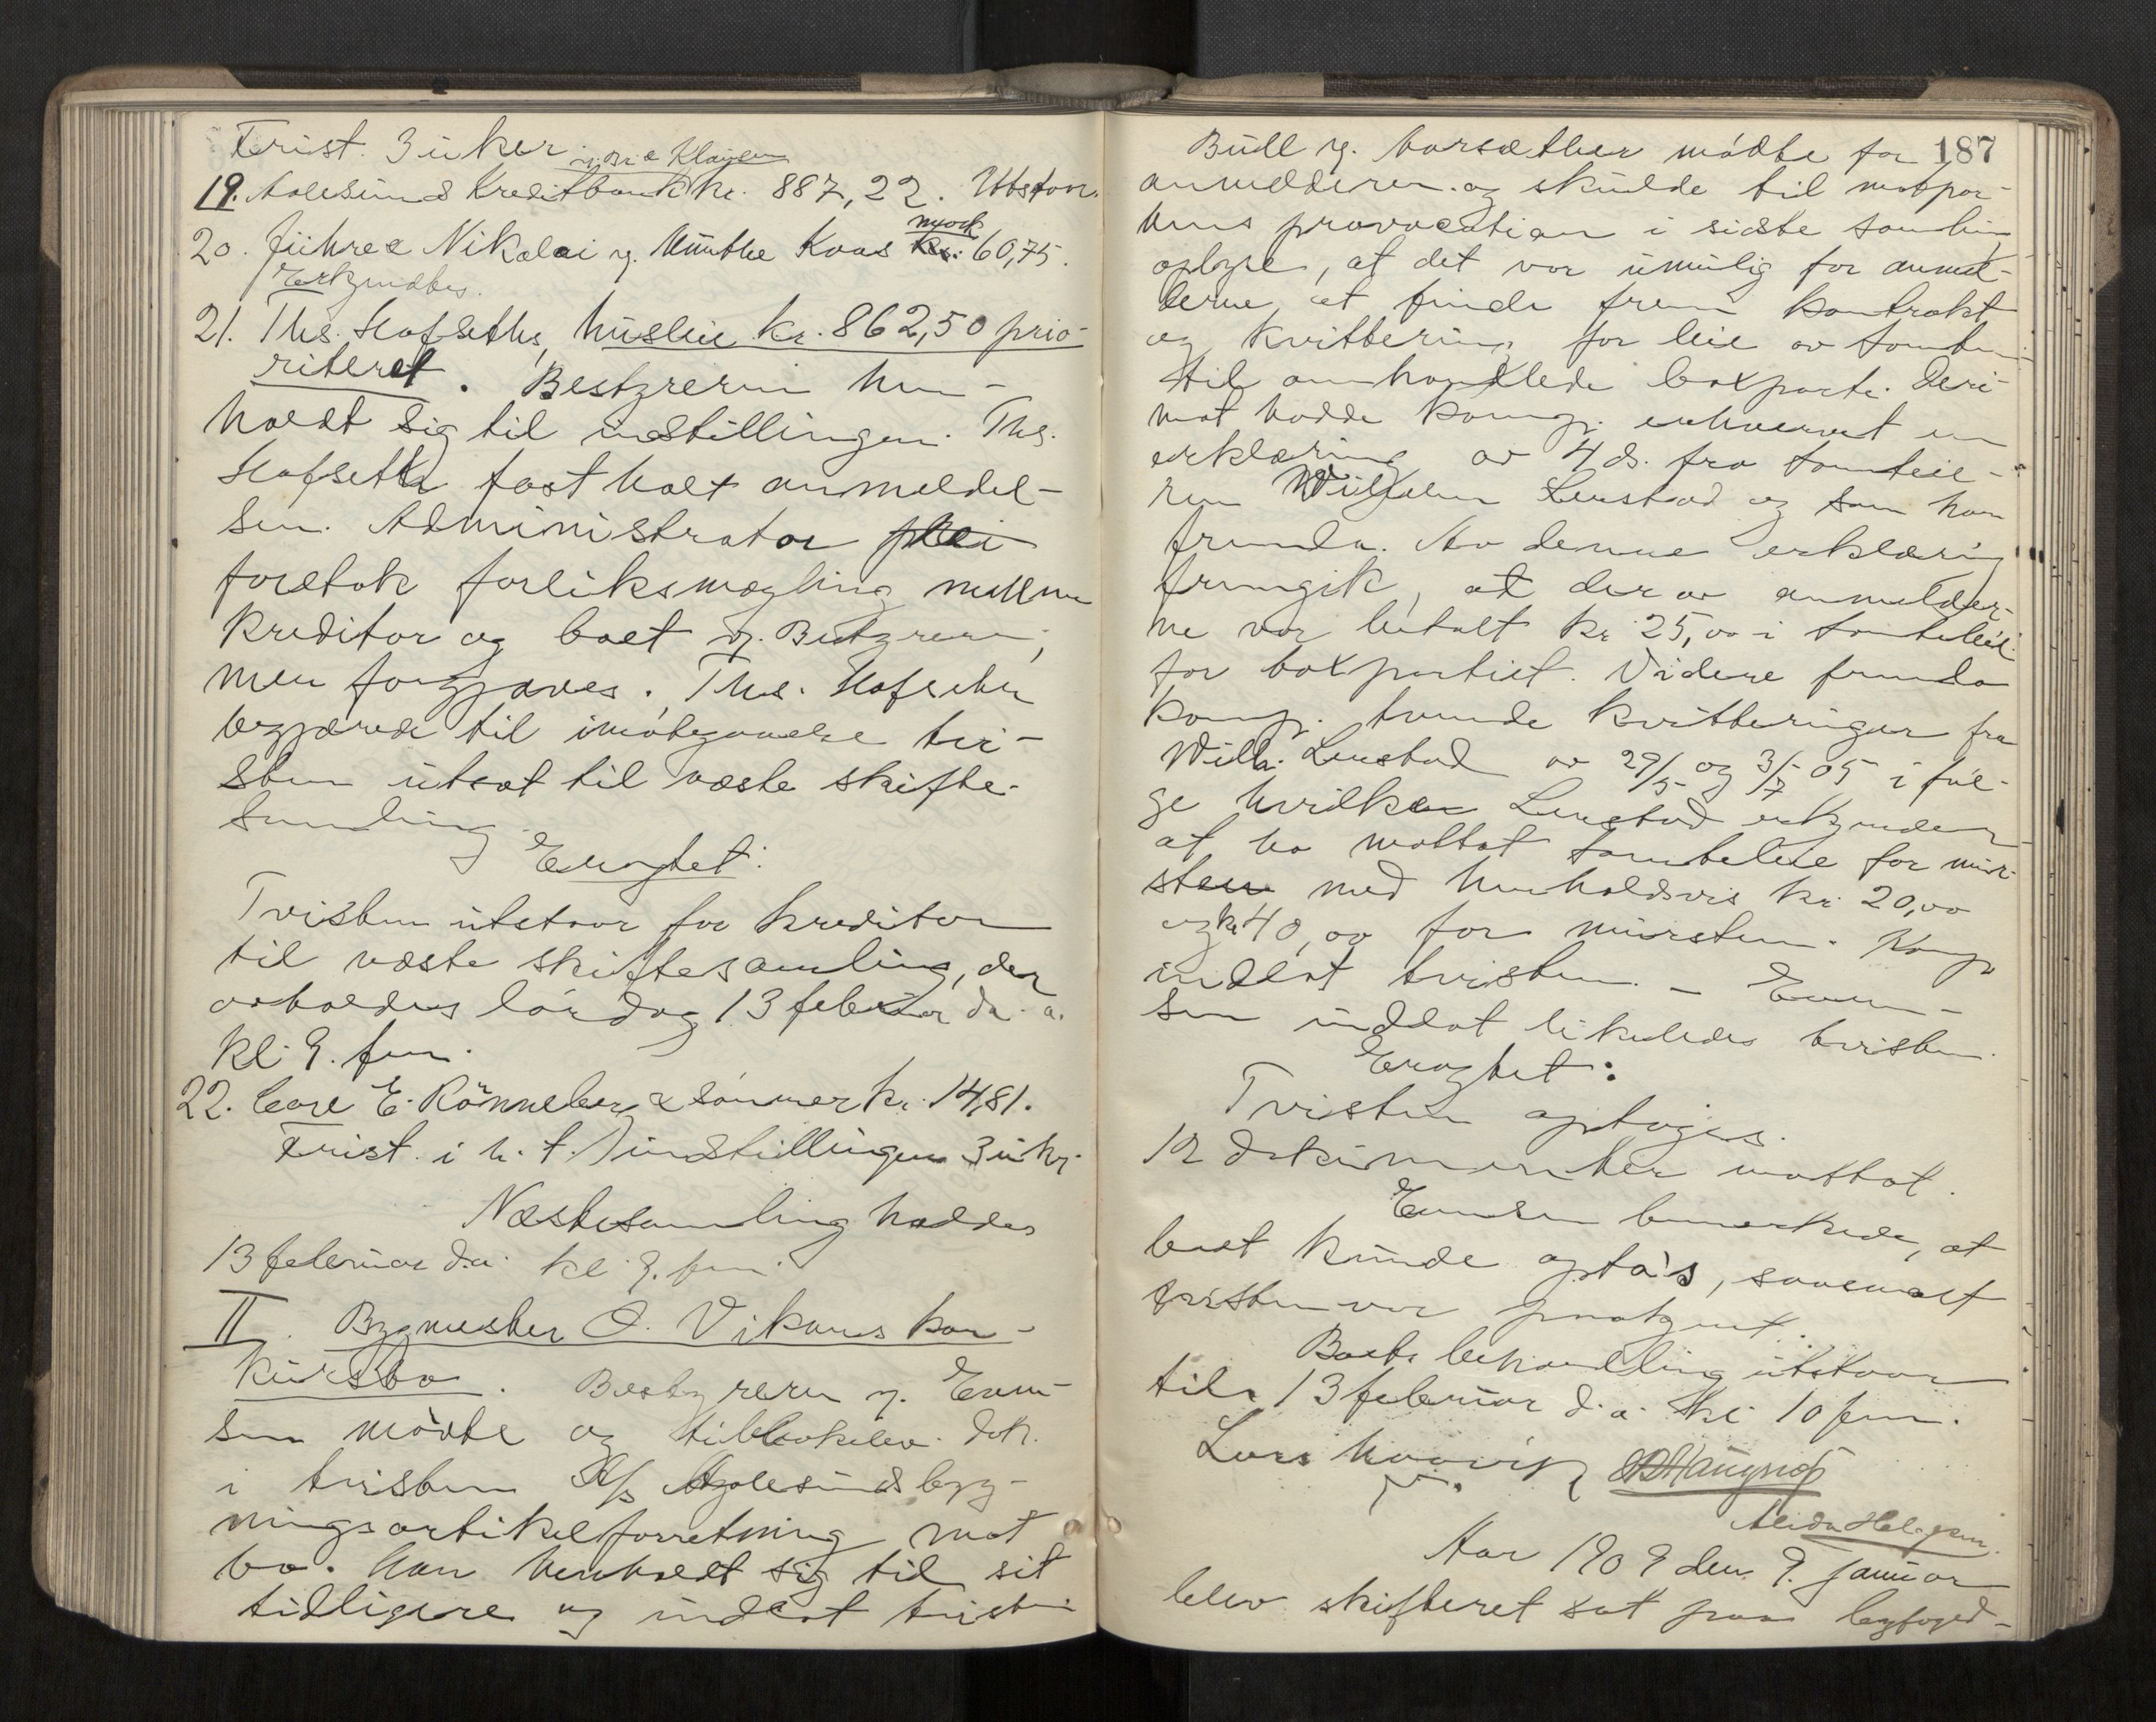 Frist. 3 uker
19. Aalesunds Kreditbank kr. 887,22. Utstaar.
20. Führer Nikolai v. Munthe Kaas kr. 60,75.
Erkjendtes.
21. Ths. Hofseths husleie kr. 862,50 prio-
riteret. Bestyreren hen-
holdt sig til indstillingen. Ths.
Hofseth fastholt anmeldel-
sen. Administrator
foretok forliksmægling mellem
kreditor og boet v. Bestyreren;
men forgjæves. Ths. Hofseth
begjærede til imøtegaaelse tvi-
sten utsat til næste skifte-
samling.
Eragtet:
Tvisten utstaar for kreditor
til næste skiftesamling, der
avholdes lørdag 13 februar d. a.
kl. 9. fm.
22. Carl E. Rønneberg & sønner kr. 14,81.
Frist. i h. t. indstillingen 3 uker
Næste samling holdes
13 februar d.a. kl. 9. fm.
II. Bygmester O. Vikans kon-
kursbo. Bestyreren v. Even-
sen mødte og tilbakelev. dok.
i tvisten A/s Aalesunds byg-
ningsartikelforretning mot
bo. Han henholdt sig til sit
tidligere og indlot tvisten
187
Bull v. Vorsæther mødte for
anmelderen og skulde til motpar-
tens provocation i sidste samling
oplyse, at det var umulig for anmel-
derne at finde frem kontrakt
og kvittering for leie av tomten
til omhandlede boxparti. Deri-
mot hadde komp. erhvervet en
erklæring av 4 ds. fra tomteeie-
ren Wilhelm Lenstad og som han
fremla. Av denne erklæring
fremgik, at der av anmelder-
ne var betalt kr. 25,00 i tomteleie
for boxpartiet. Videre fremla
komp. tvende kvitteringer fra
Wilh. Lenstad av 29/5 og 3/7 05 i føl-
ge hvilke Lenstad erkjender
at ha mottat tomteleie for mur-
sten med henholdsvis kr. 20,00
og kr. 40,00 for mursten. Komp
indlot tvisten. – Even-
sen indlot likeledes tvisten.
Eragtet:
Tvisten optages.
12 dokumenter mottat.
Evensen bemerkede, at
boet kunde opta's, saasnart
tvisten var paakjent.
Boets behandling utstaar
til 13 februar d. a. kl. 10 fm.
Aar 1909 den 9. januar
blev skifteret sat paa byfoged-